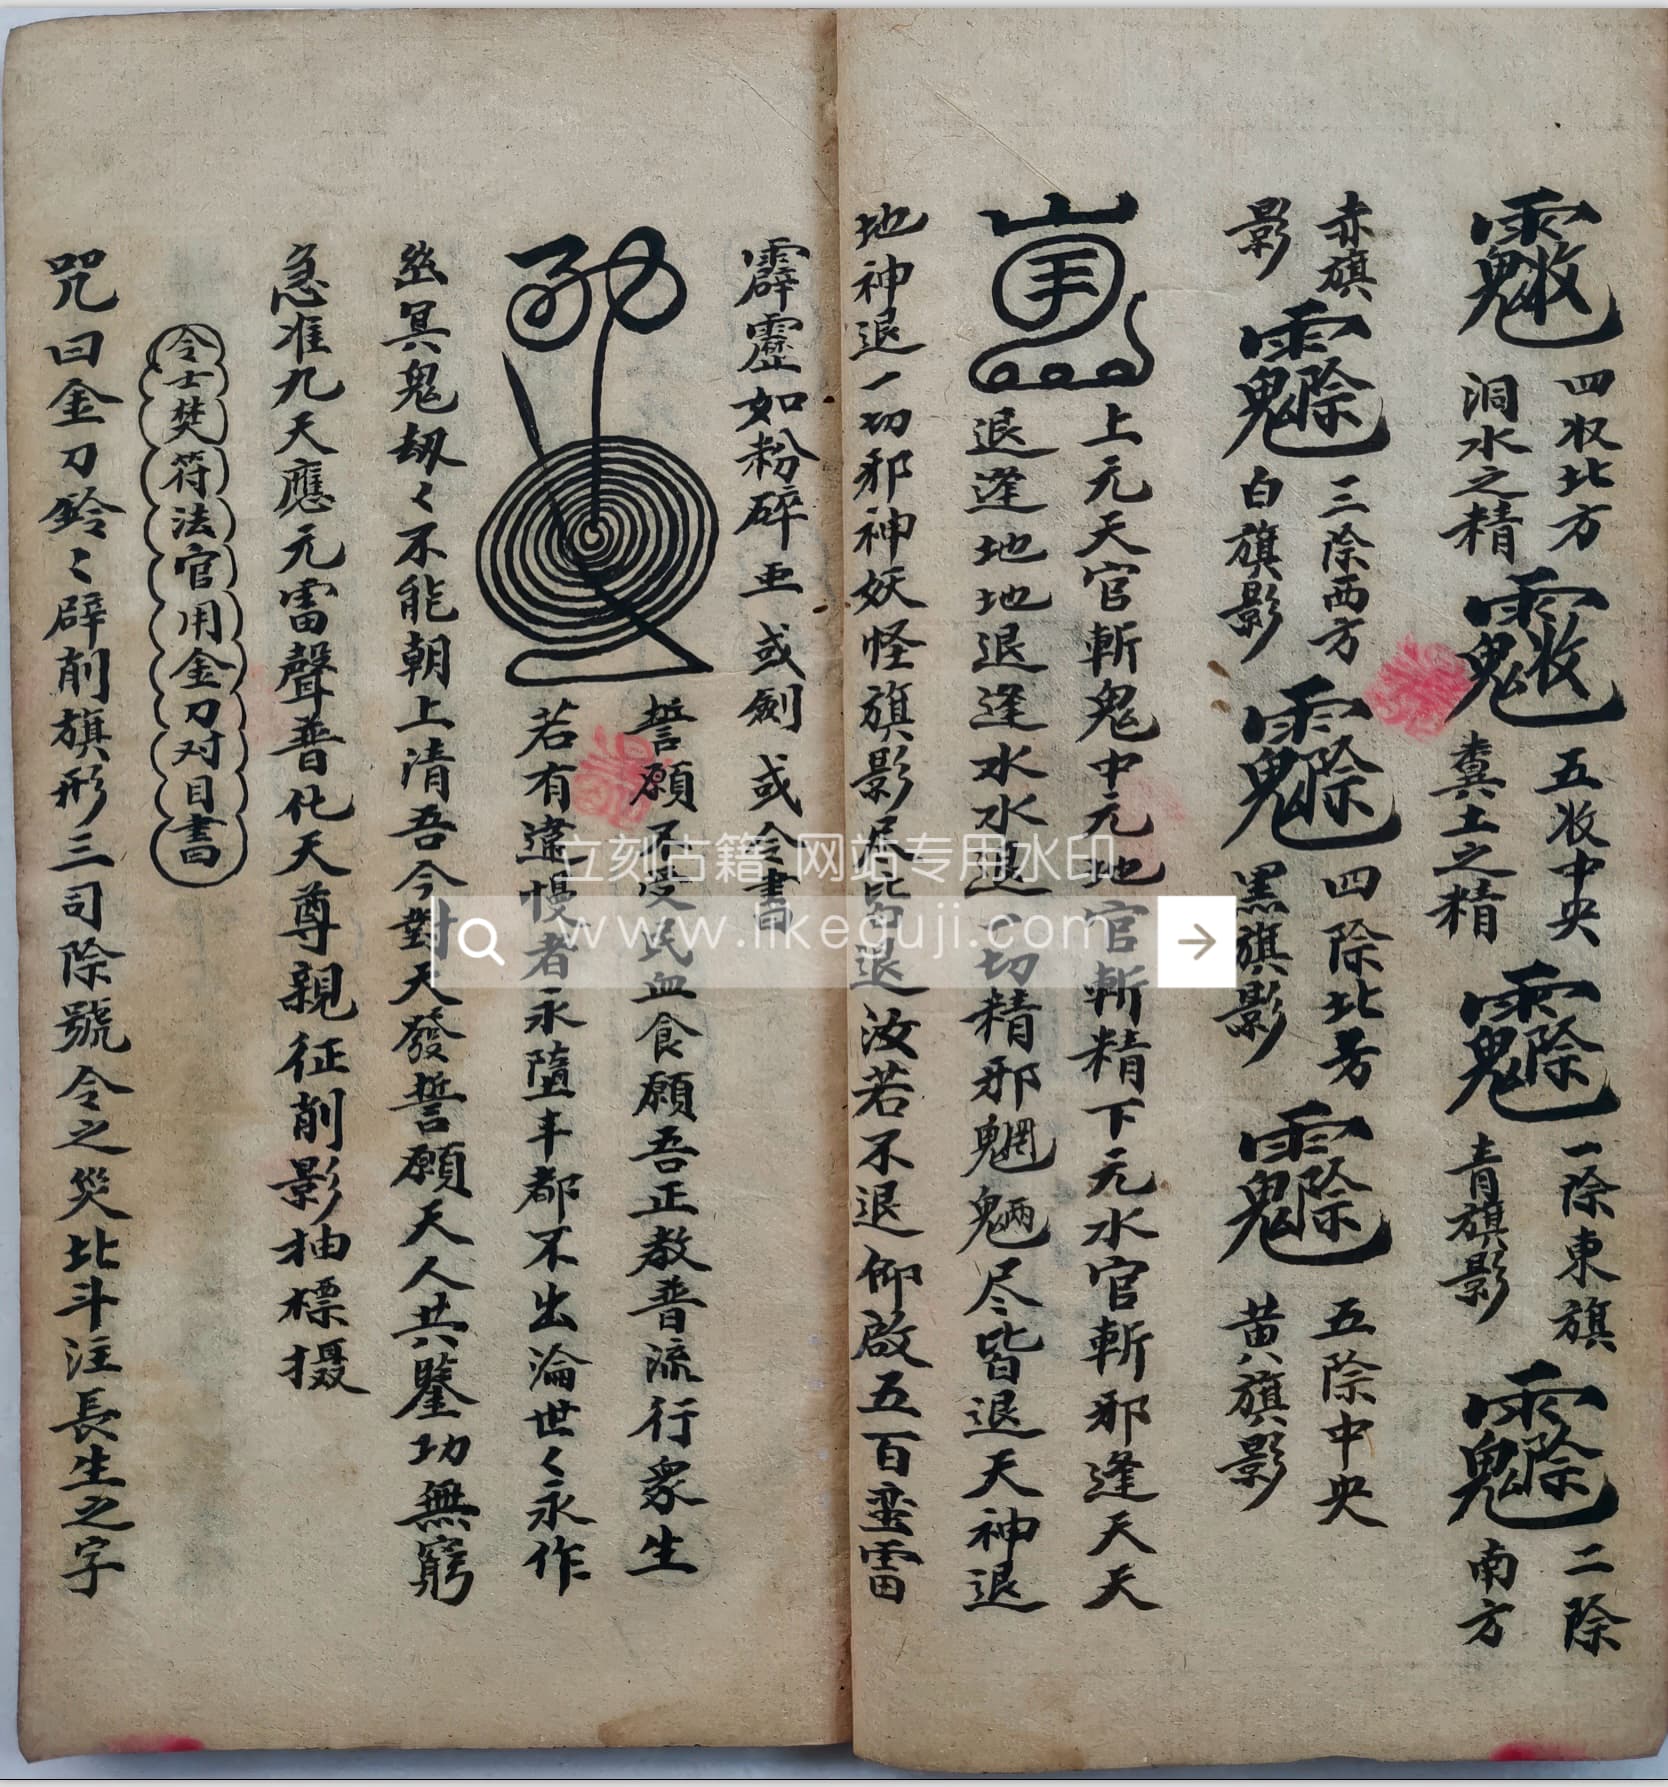 四收北方
洞水之精
五收中央
糞土之精
一除東旗
青旗影
二除
南方
赤旗
影
三除西方
白旗影
四除北方
黑旗影
五除中央
黄旗影
上元天官斬鬼中元地官斬精下元水官斬邪逢天天
退逢地地退逢水水退一切精邪魍魎尽皆退天神退
地神退一切邪神妖怪旗影尽皆退汝若不退仰啟五百蛮雷
霹靂如粉碎 王或劍或令書
誓願不受民血食願吾正教普流行眾生
若有違慢者永墮丰都不出淪世々永作
幽冥鬼劫々不能朝上清吾今對天發誓願天人共鑒功無窮
急准九天應元雷聲普化天尊親征削影抽標摄
令士焚符法官用金刀对目書
咒曰金刀鈴々辟削旗形三司除號令之災北斗注長生之字
立刻古籍 网站专用水印
www.likeguji.com